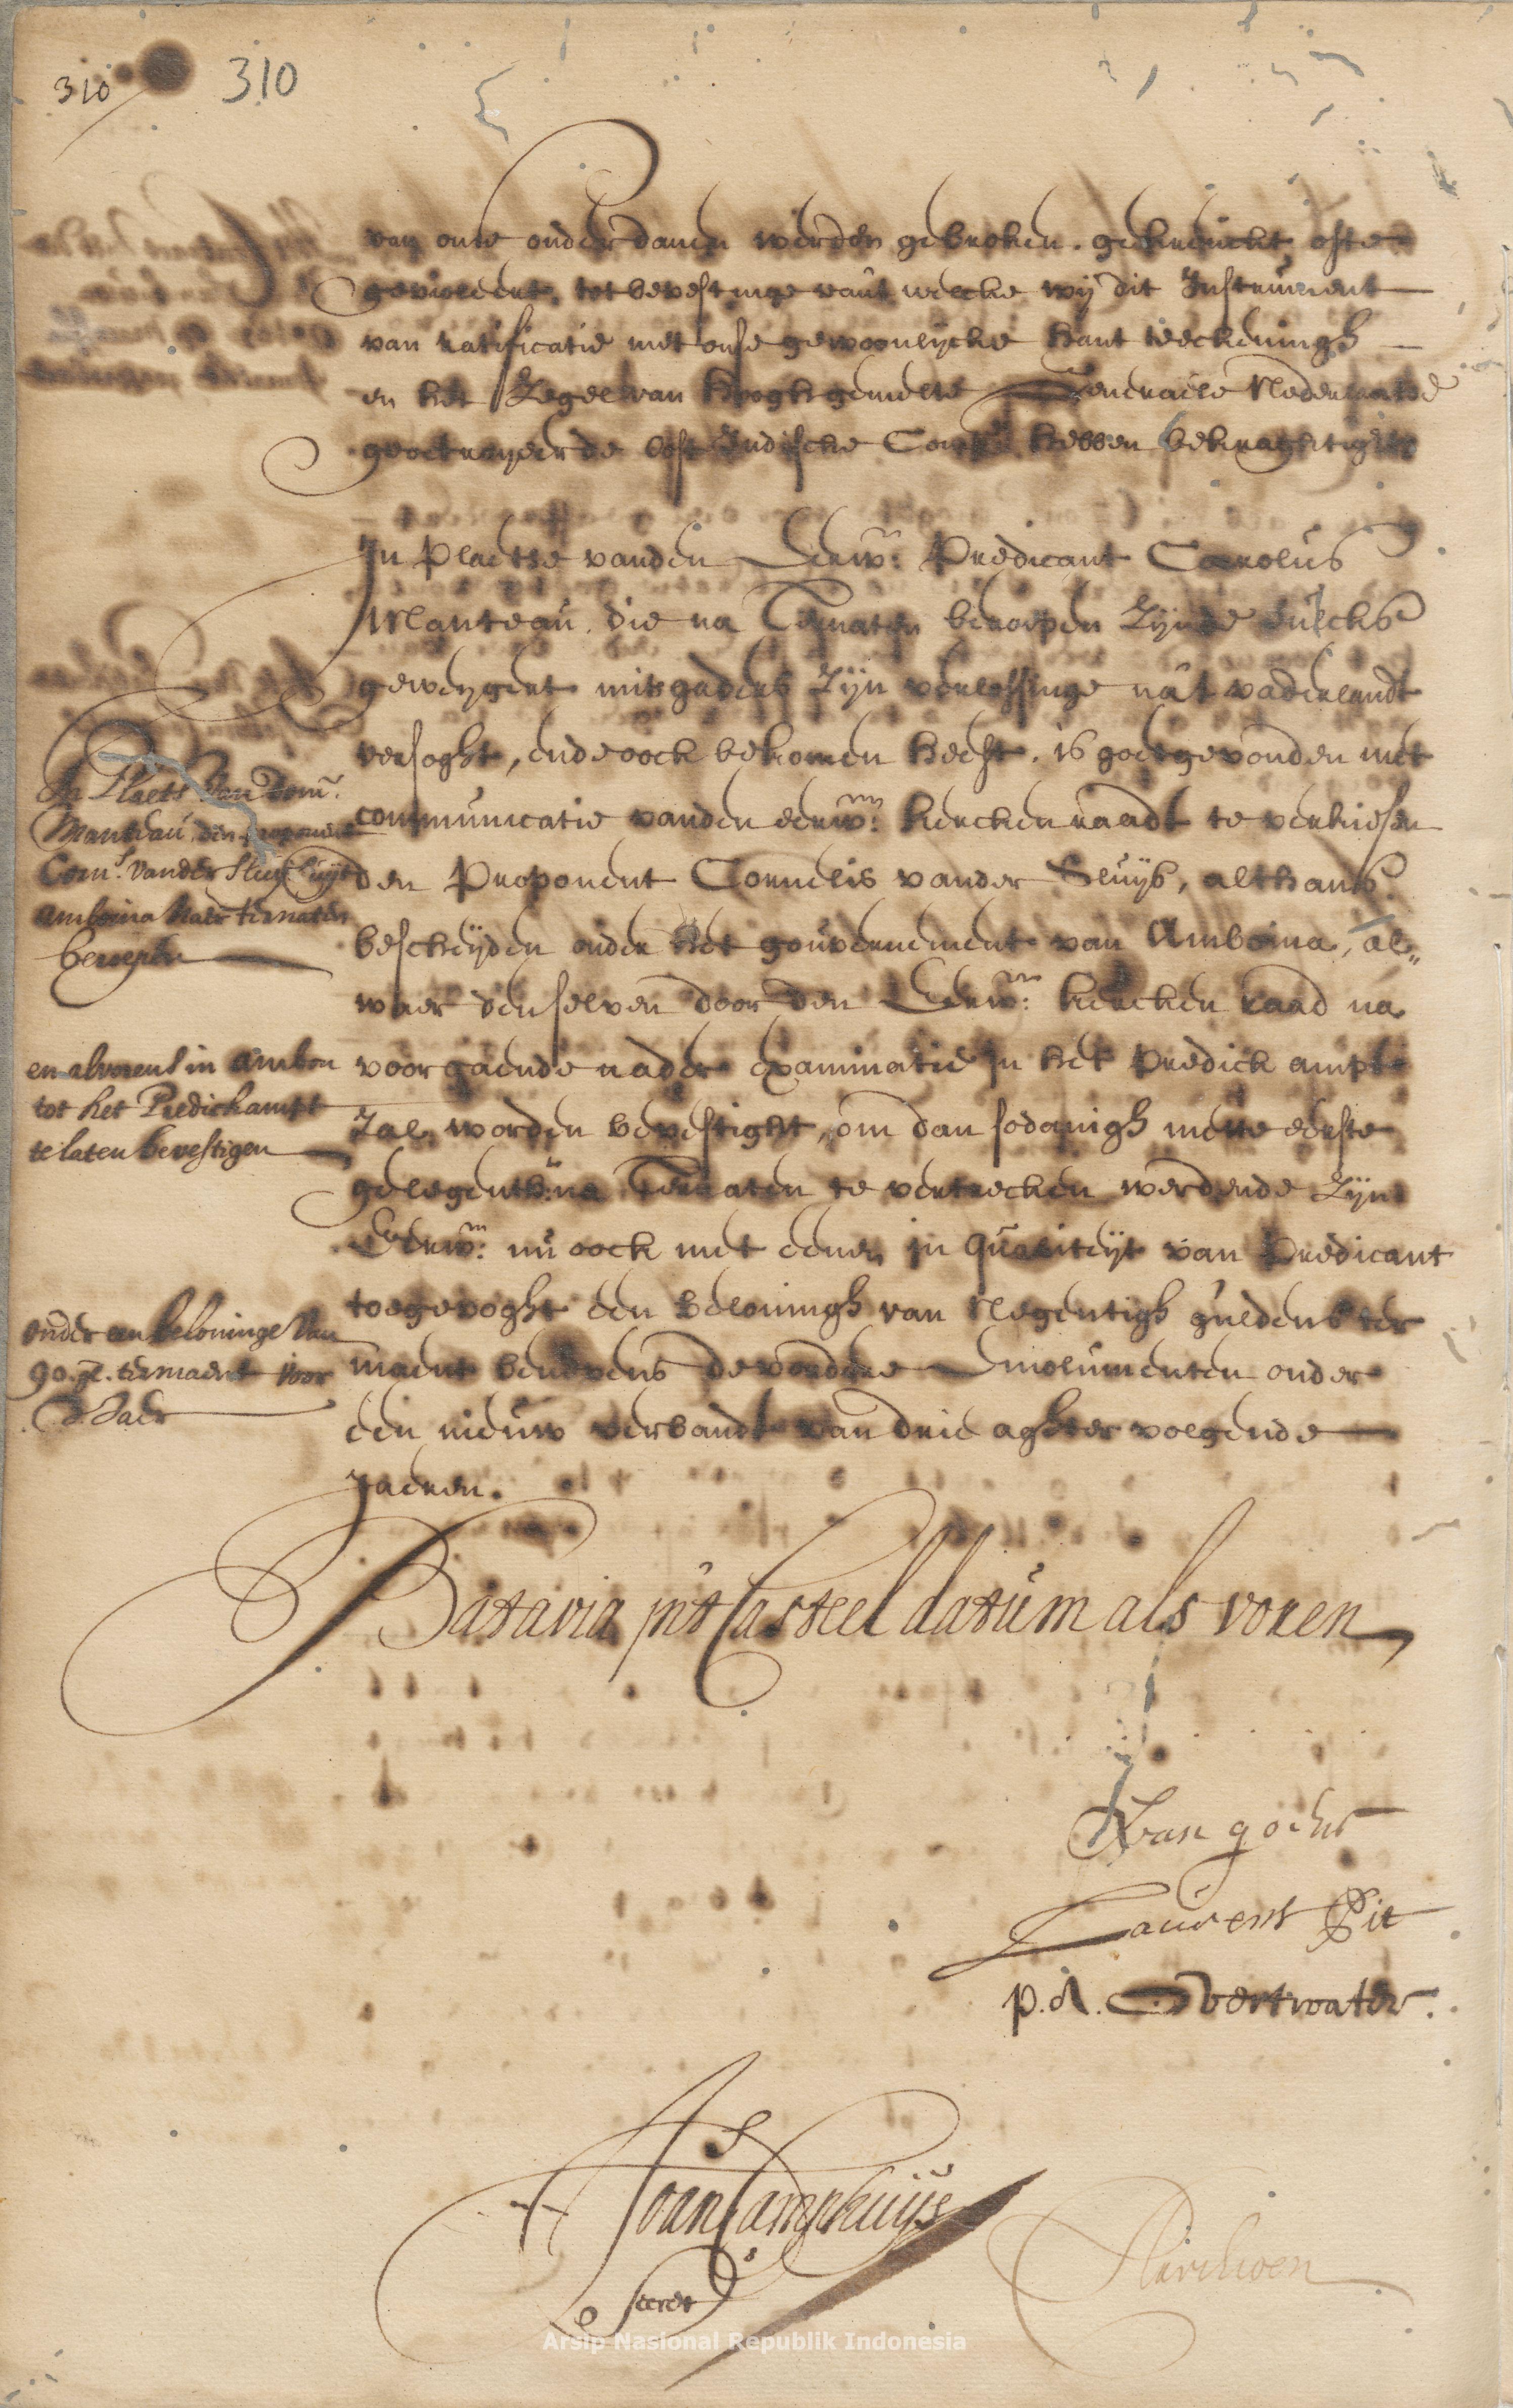 310
310
van onse onderdanen werden gebroken, gekrenckt, ofte
gevioleert, tot bevestinge van't welcke wij dit Instrument
van ratificatie met onse gewoonlijcke hant teeckeningh
en het Zegel van hooghgemelte Generaele Nederlantse
geoctroyeerde Oost Indische Comp.e hebben bekraghtight
In plaetse vanden Eerw: Predicant Carolus
Manteau, die na Ternaten beroepen zijnde sulckx
geweygert mitsgaders zijn verlossinge na't vaderlandt
versoght, ende oock bekomen heeft, is goetgevonden met
communicatie vanden eerw:en kerckenraadt te verkiesen
den Proponent Cornelis vander Sluijs, althans
bescheijden onder het gouvernement van Amboina, al„
waer denselven door den Eerw:n kercken raad na
voorgaende nader examinatie in het Predick ampt
zal worden bevestight, om dan sodanigh mette eerste
gelegenth: na Ternaten te vertrecken werdende zijn
Eerw:n nu oock met eenen in qualiteijt van Predicant
toegevoght een beloningh van Negentigh guldens ter
maent benevens de vordere Emolumenten onder
een nieuw verbandt van drie aghter volgende
jaeren.
In Plaets van Dom:
Manteau den proponent
Corn.s vander Sluijs uijt
amboina naer ternaten
beroepen
en alvorens in Ambon
tot het Predickampt
te laten bevestigen
onder een beloninge van
90. gl. ter maent voor
3 Jaer
Batavia int Casteel datum als voren
van goens
Laurens Pit
p. A. Overtwater.
Joan Camphuijs
Secret.s
Arsip Nasional Republik Indonesia